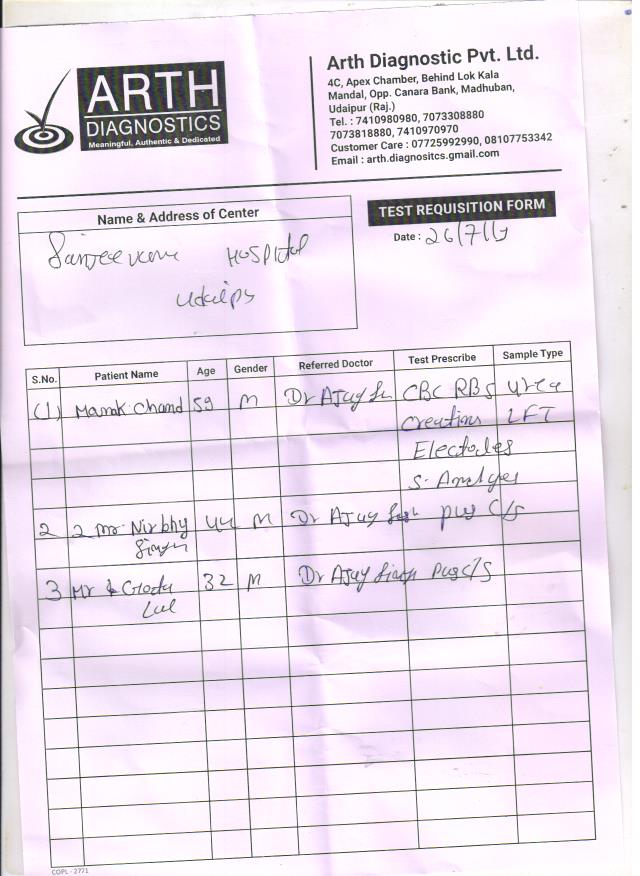 ARTH
DIAGNOSTICS
Meaningful, Authentic & Dedicated
Arth Diagnostic Pvt. Ltd.
4C, Apex Chamber, Behind Lok Kala
Mandal, Opp. Canara Bank, Madhuban,
Udaipur (Raj.)
Tel. : 7410980980, 7073308880
7073818880, 7410970970
Customer Care : 07725992990, 08107753342
Email : arth.diagnositcs.gmail.com
Name & Address of Center
TEST REQUISITION FORM
Date : 26/7/
HOSPItal
S.No. Patient Name Age Gender Referred Doctor Test Prescribe Sample Type
(1) Manak Chand 59 M Dr AJay CBC RBS Urea
LFT
S. 
2 2 mr. Nirbhy 44 M Dr AJay pus C/S
3 Mr 32 M Dr AJay pus C/S
Lal
COPL - 2771